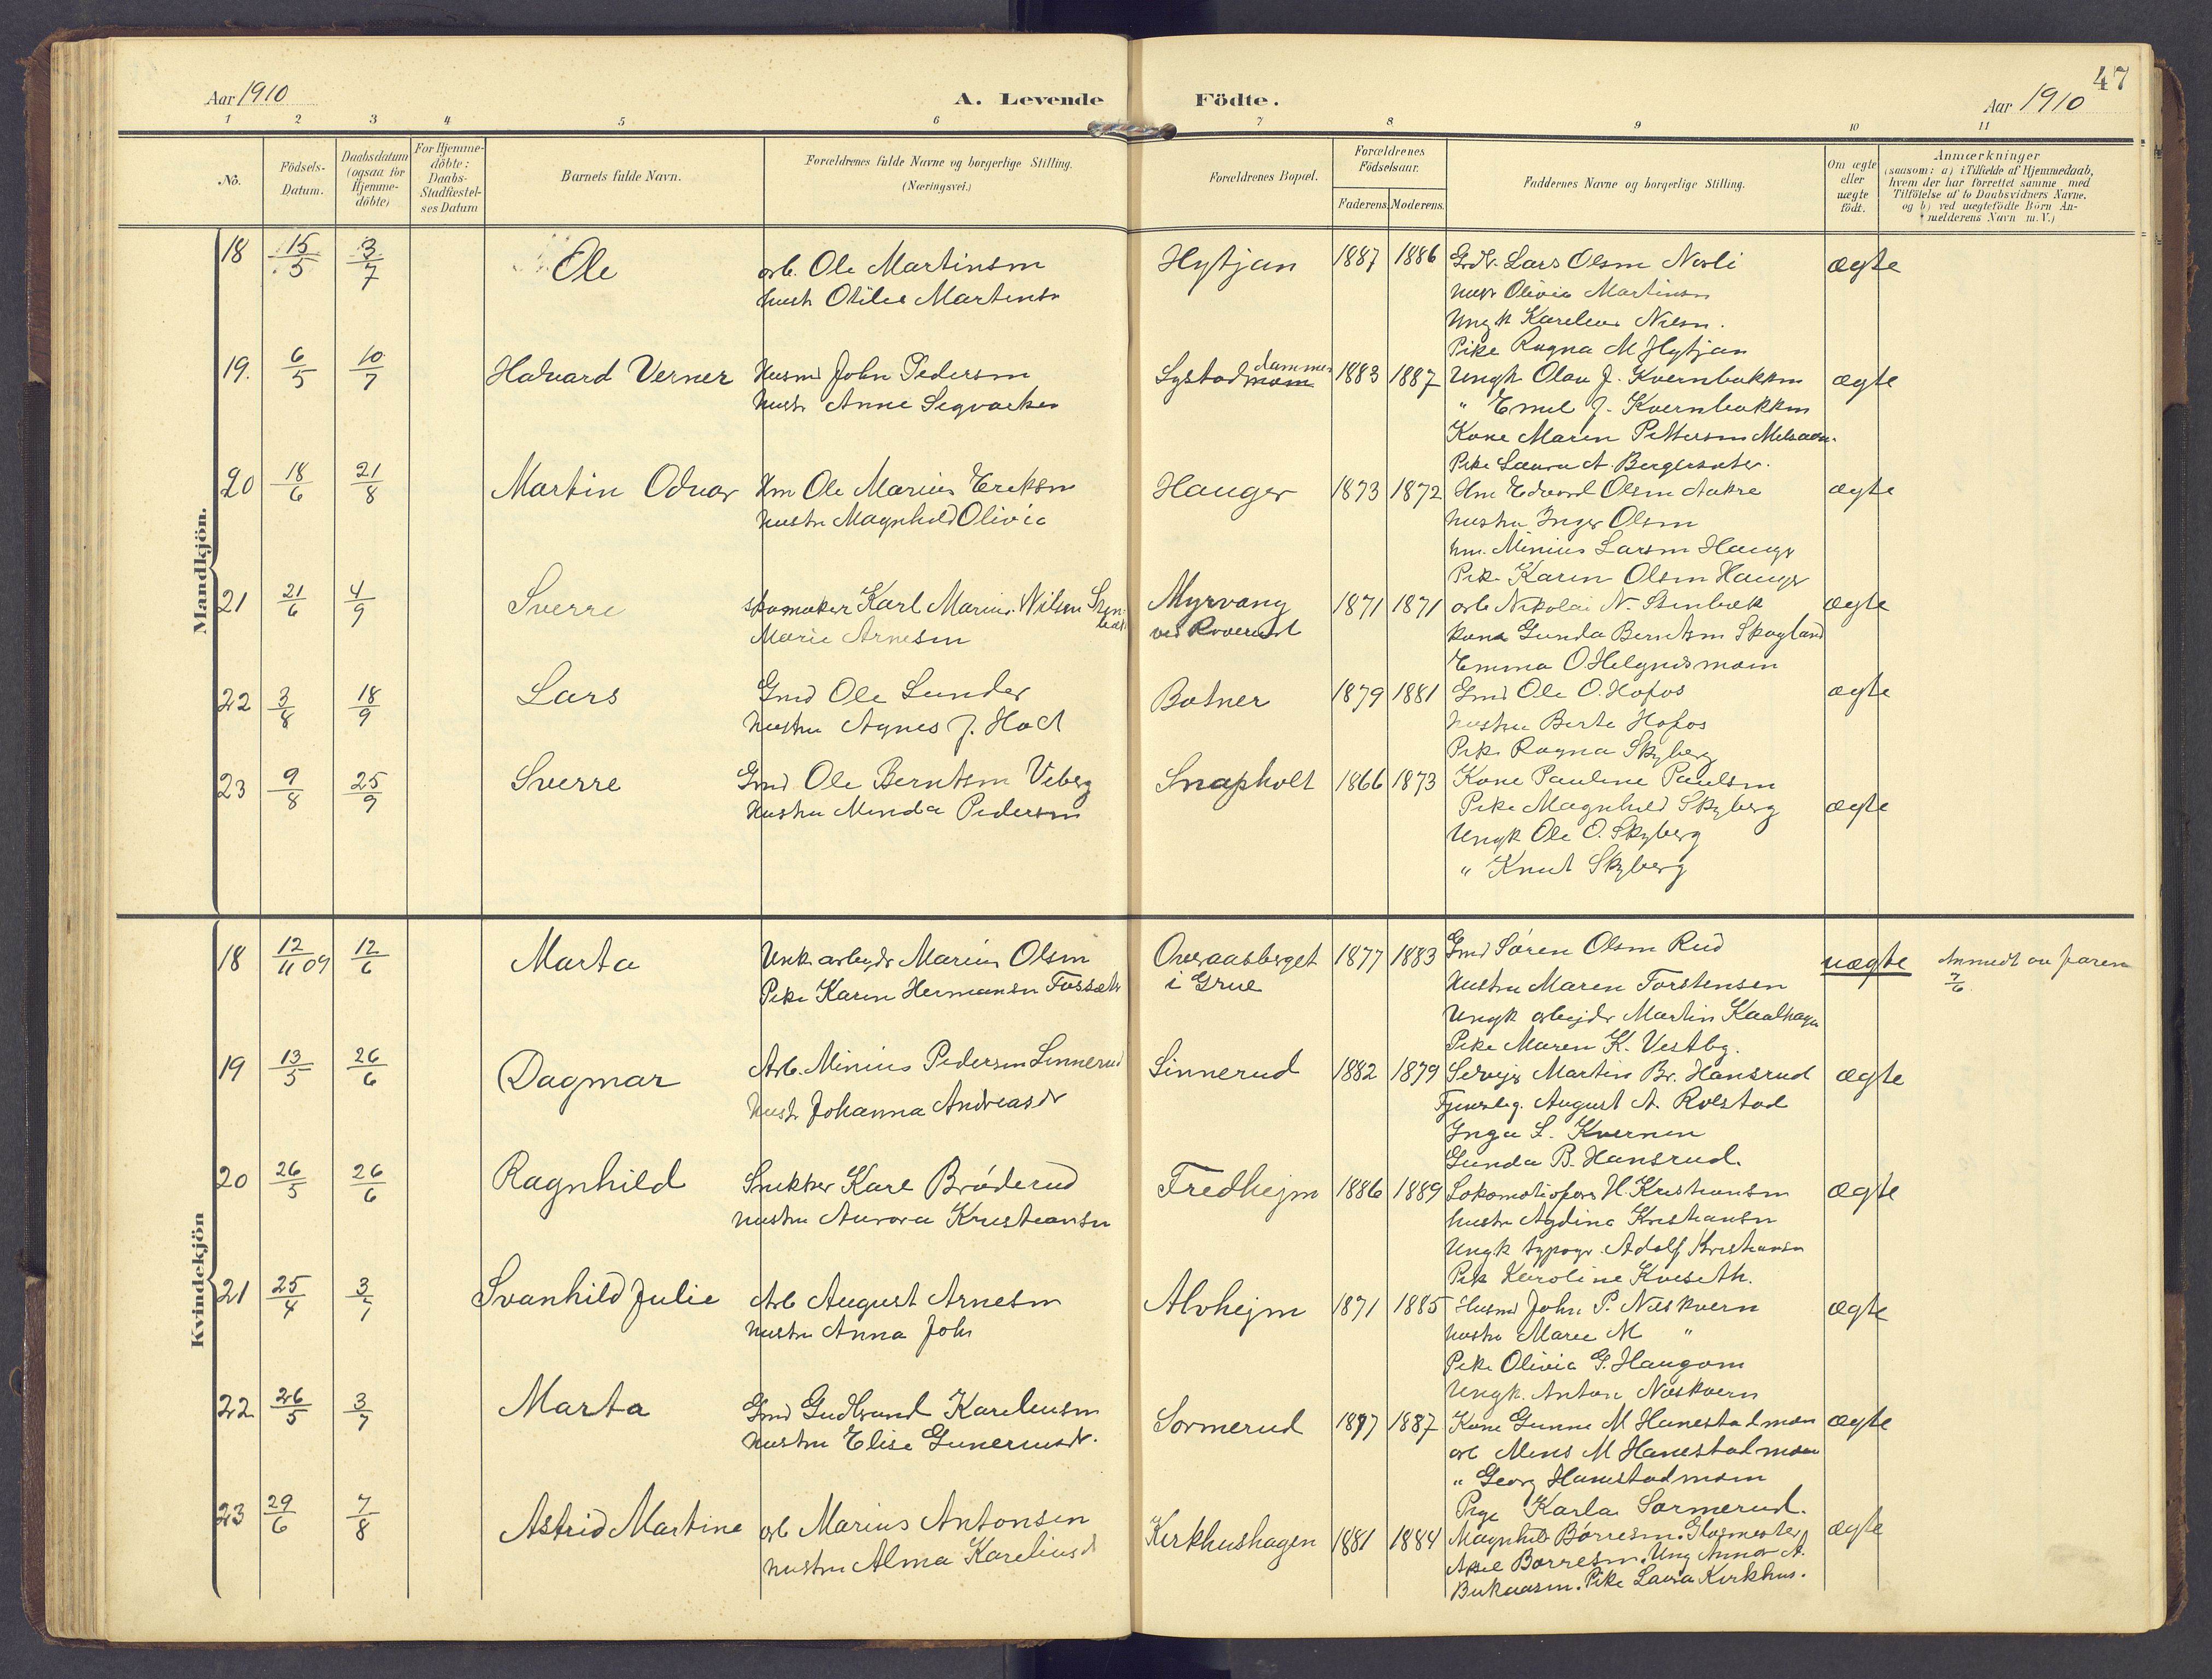 47
Aar 1910
A. Levende Födte.
Aar 1910
1 2 3 4 5 6 7 8 9 10 11
No.
Födsels-
Datum.
Daabsdatum
(ogsaa for
Hjemme-
döbte)
For Hjemme-
döbte:
Daabs-
Stadfæstel-
ses Datum
Barnets fulde Navn.
Forældrenes fulde Navne og borgerlige Stilling.
(Næringsvei.)
Forældrenes Bopæl.
Forældrenes
Födselsaar.
Faderens. Moderens.
Faddernes Navne og borgerlige Stilling.
Om ægte
eller
uægte
födt.
Anmærkninger
(saasom: a) i Tilfælde af Hjemmedaab,
hvem der har forrettet samme med
Tilföielse af to Daabsvidners Navne,
og b) ved uægtefödte Börn An-
melderens Navn m. V.)
Mandkjön.
18 15/5 3/7 Ole arb. Ole Martinsen Hytjan 1887 1886 Lars Olsen Nerli ægte
hustr Otilie Martinsen
hustr Olivia Martinsen
Ungk Karelius Nilsen.
Pike Ragna M Hytjan
19. 6/5 10/7 Halvard Verner Husmd John Pedersen Lystad dammen 1883 1887 Ungk Olav J. Kvernbakken ægte
hustr Anne
" Emil J. Kvernbakken
Kone Maren Pettersen
Pike Laura A. Bergerseter.
20 18/6 21/8 Martin Odvar Hm Ole Marius Eriksen Hauger 1873 1872 Hm Edvard Olsen Aakre ægte
hustru Magnhild Olivia
hustru Inger Olsen
hm. Minius Larsen Hauger
Pike Karen Olsen Hauger
21 21/6 4/9 Sverre skomaker Karl Marius Nilsen Stenbæk Myrvang 1871 1871 arb Nikolai N. Stenbæk ægte
Marie Arnesen ved Roverud
kone Gunda Berntsen Skogland
Emma O Helgnesmoen
22 3/8 18/9 Lars Gmd Ole Lunder Botner 1879 1881 Gmd Ole O. Hofos ægte
hustru Agnes J. Hoel
hustru Berte Hofos
Pike Ragna Skyberg
23 9/8 25/9 Sverre Gmd Ole Berntsen Viberg Snapholt 1866 1873 Kone Pauline Paulsen
hustru Minda Pedersen
Pike Magnhild Skyberg ægte
Ungk Ole O. Skyberg
" Knut Skyberg
Kvindekjön
18 12/11 09 12/6 Marta Unk. arbejdr Marius Olsen Overaasberget 1877 1883 Gmd Søren Olsen Rud uægte Anmeldt av faren
Pike Karen Hermansen Fossæth i Grue
7/6
Hustru Maren Torstensen
Ungk arbejdr Martin Kaalhagen
Pike Maren K. Vestbg.
19 13/5 26/6 Dagmar Arb. Minius Pedersen Linnerud Linnerud 1882 1879 Selvejer Martin Br. Hansrud ægte
hustr Johanna Andreasdr
August A. Rolstad
Inga L. Kvernen
Gunda B. Hansrud.
20 26/5 26/6 Ragnhild Snikker Karl Bråderud Fredhejm 1886 1889 Lokomotivfører H. Kristiansen ægte
hustru Aurora Kristiansen
hustr Agdina Kristiansen
Ungk typogr. Adolf Kristiansen
Pike Karoline Kveseth.
21 25/4 3/7 Svanhild Julie Arb August Arnesen Alvhejm 1871 1885 Husmd John P. Næskvern ægte
hustru Anna Joh
hustru Maree M "
Pike Olivia G. Haugom
Ungk. Anton Næskvern
22 26/5 3/7 Marta Gmd Gudbrand Kareliusen Sormerud 1877 1887 Kone Gunne M Hanestadmoen ægte
hustru Elise Guneriusdr.
arb Mens M Hanestadmoen
" Georg Hanestadmoen
Pige Karla Sormerud.
23 29/6 7/8 Astrid Martine arb Marius Antonsen Kirkhushagen 1881 1884 Magnhild Børresen. Glasmester ægte
hustru Alma Kareliusd
Aksel Børresen. Ung Annar A.
Bukaasen. Pike Laura Kirkhus.